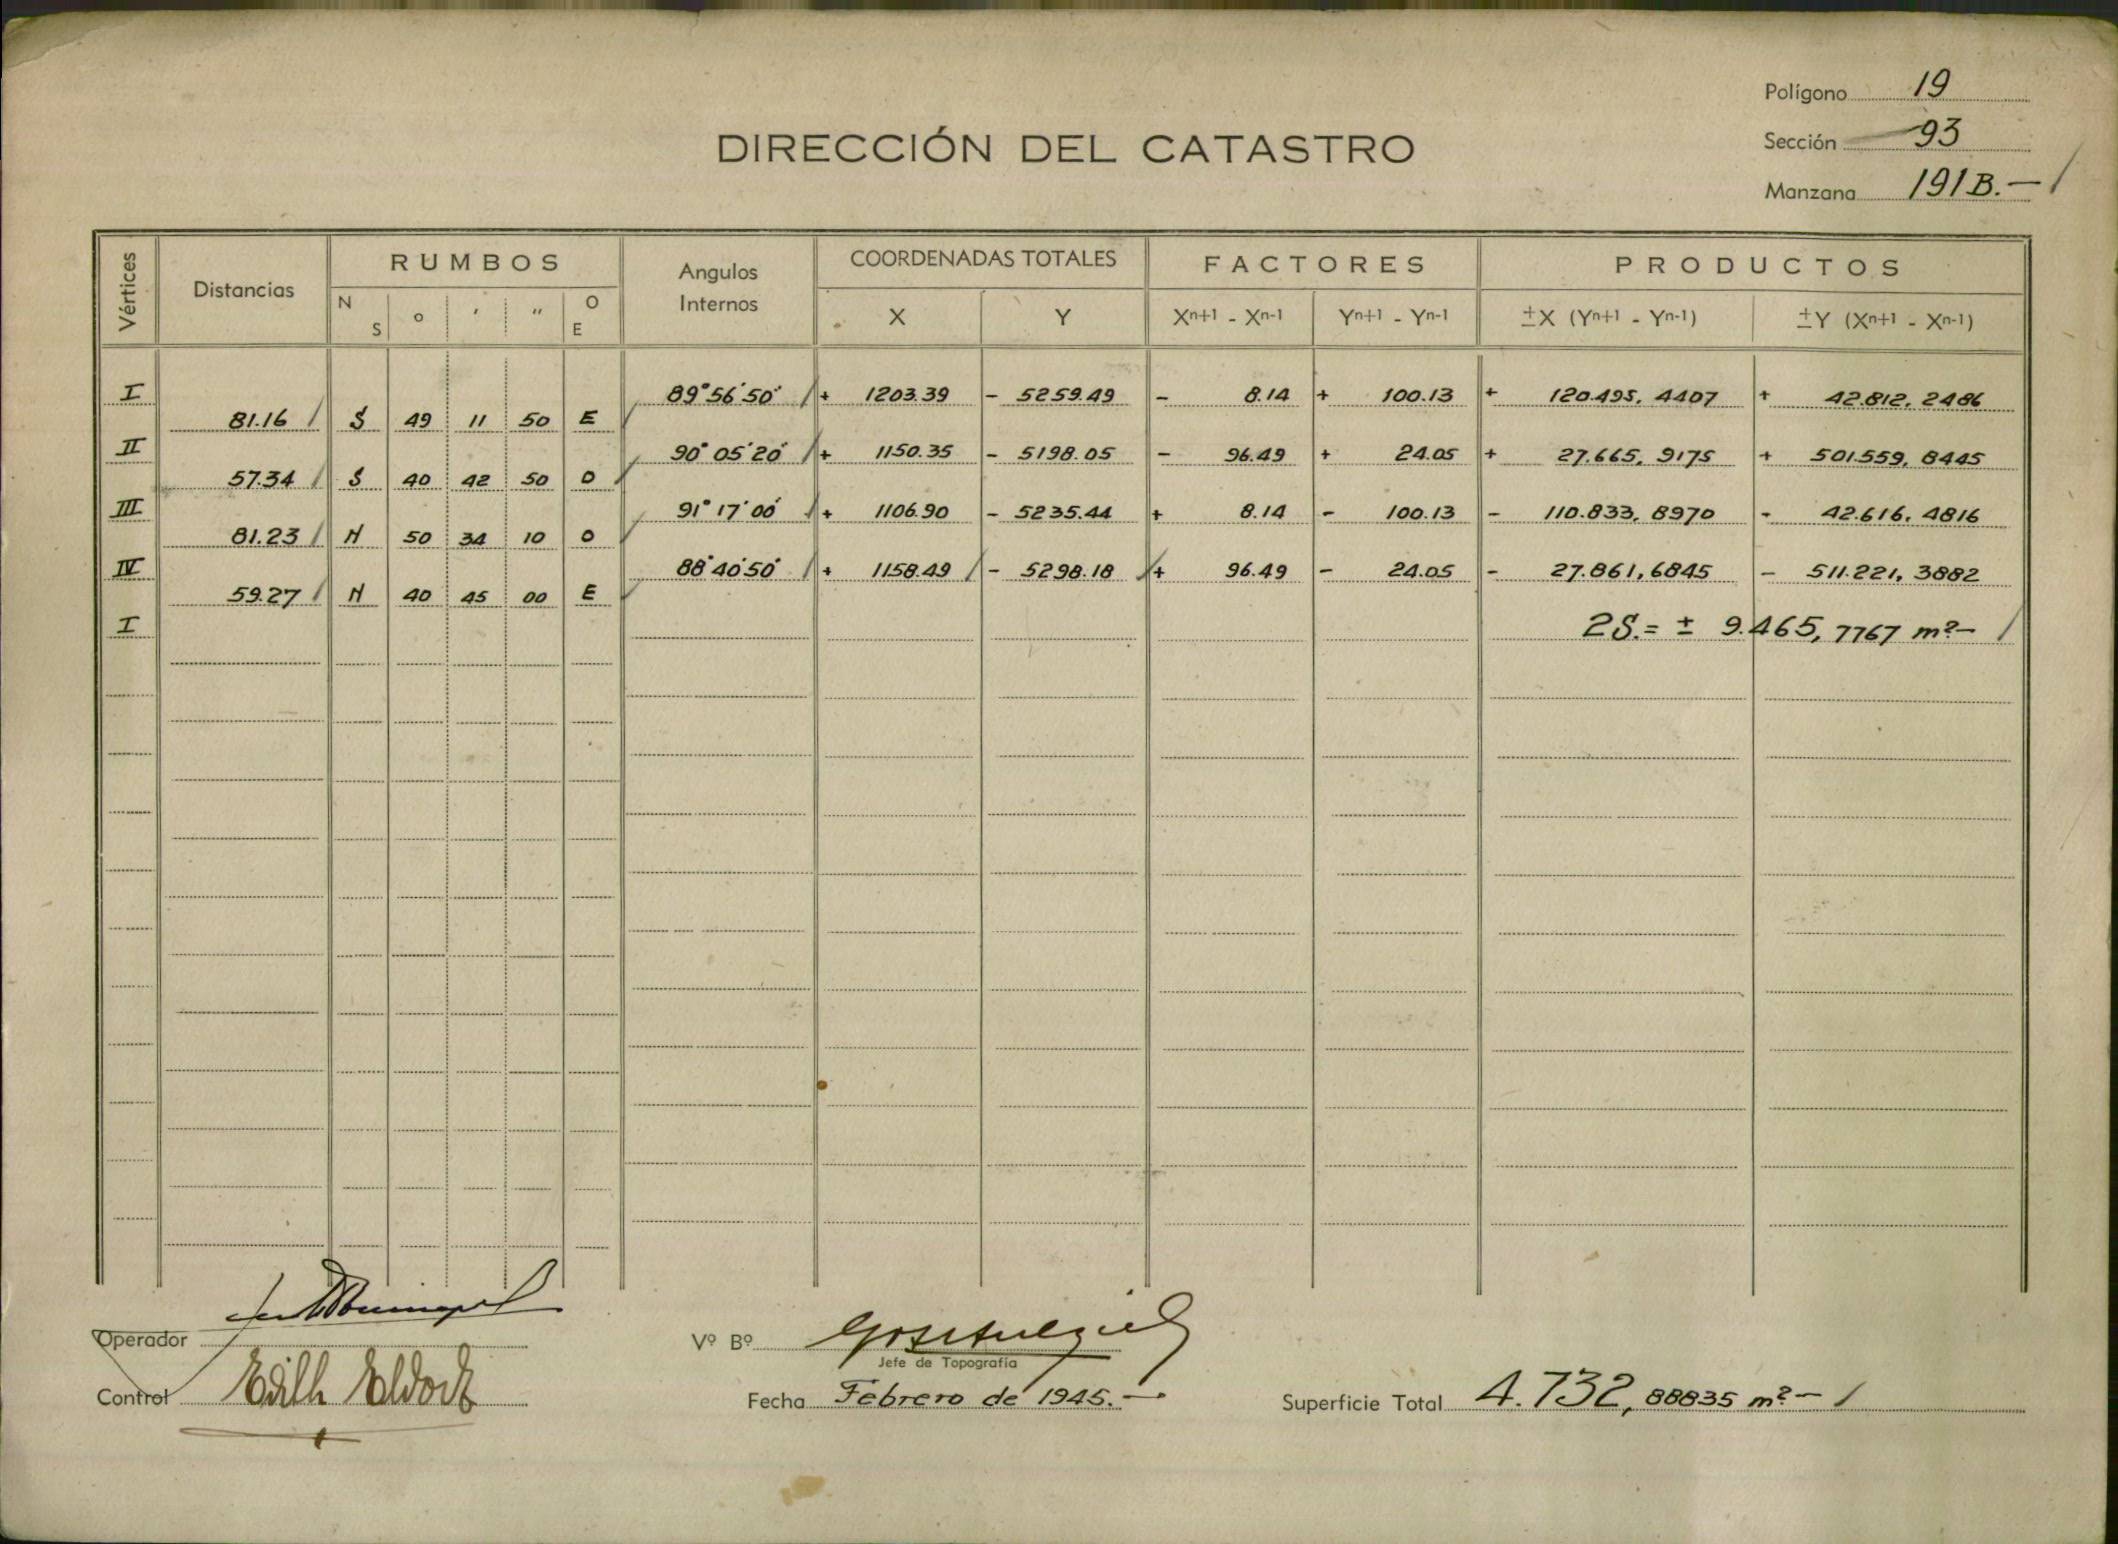 Polígono 19
DIRECCIÓN DEL CATASTRO
Sección 93
Manzana 191 B.—
Vértices Distancias RUMBOS Angulos Internos COORDENADAS TOTALES FACTORES PRODUCTOS
N S ° ' " O E X Y Xn+1 - Xn-1 Yn+1 - Yn-1 ±X (Yn+1 - Yn-1) ±Y (Xn+1 - Xn-1)
I 89°56'50" + 1203.39 - 5259.49 - 8.14 + 100.13 + 120.495,4407 + 42.812,2486
81.16 S 49 11 50 E
II 90°05'20" + 1150.35 - 5198.05 - 96.49 + 24.05 + 27.665,9175 + 501.559,8445
57.34 S 40 42 50 O
III 91°17'00" + 1106.90 - 5235.44 + 8.14 - 100.13 - 110.833,8970 - 42.616,4816
81.23 N 50 34 10 O
IV 88°40'50" + 1158.49 - 5298.18 + 96.49 - 24.05 - 27.861,6845 - 511.221,3882
59.27 N 40 45 00 E
I 2S.= ± 9.465,7767 m²—
Operador
Vº Bº
Jefe de Topografía
Control Edith
Fecha Febrero de 1945.—
Superficie Total 4.732,88835 m²—